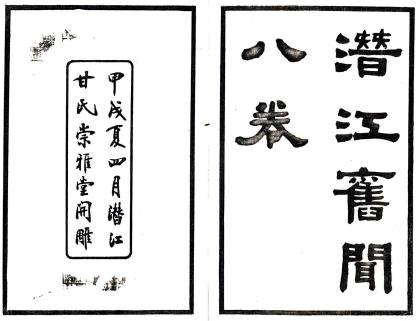 潛江舊聞
八卷
甲戌夏四月潛江
甘氏崇雅堂開雕